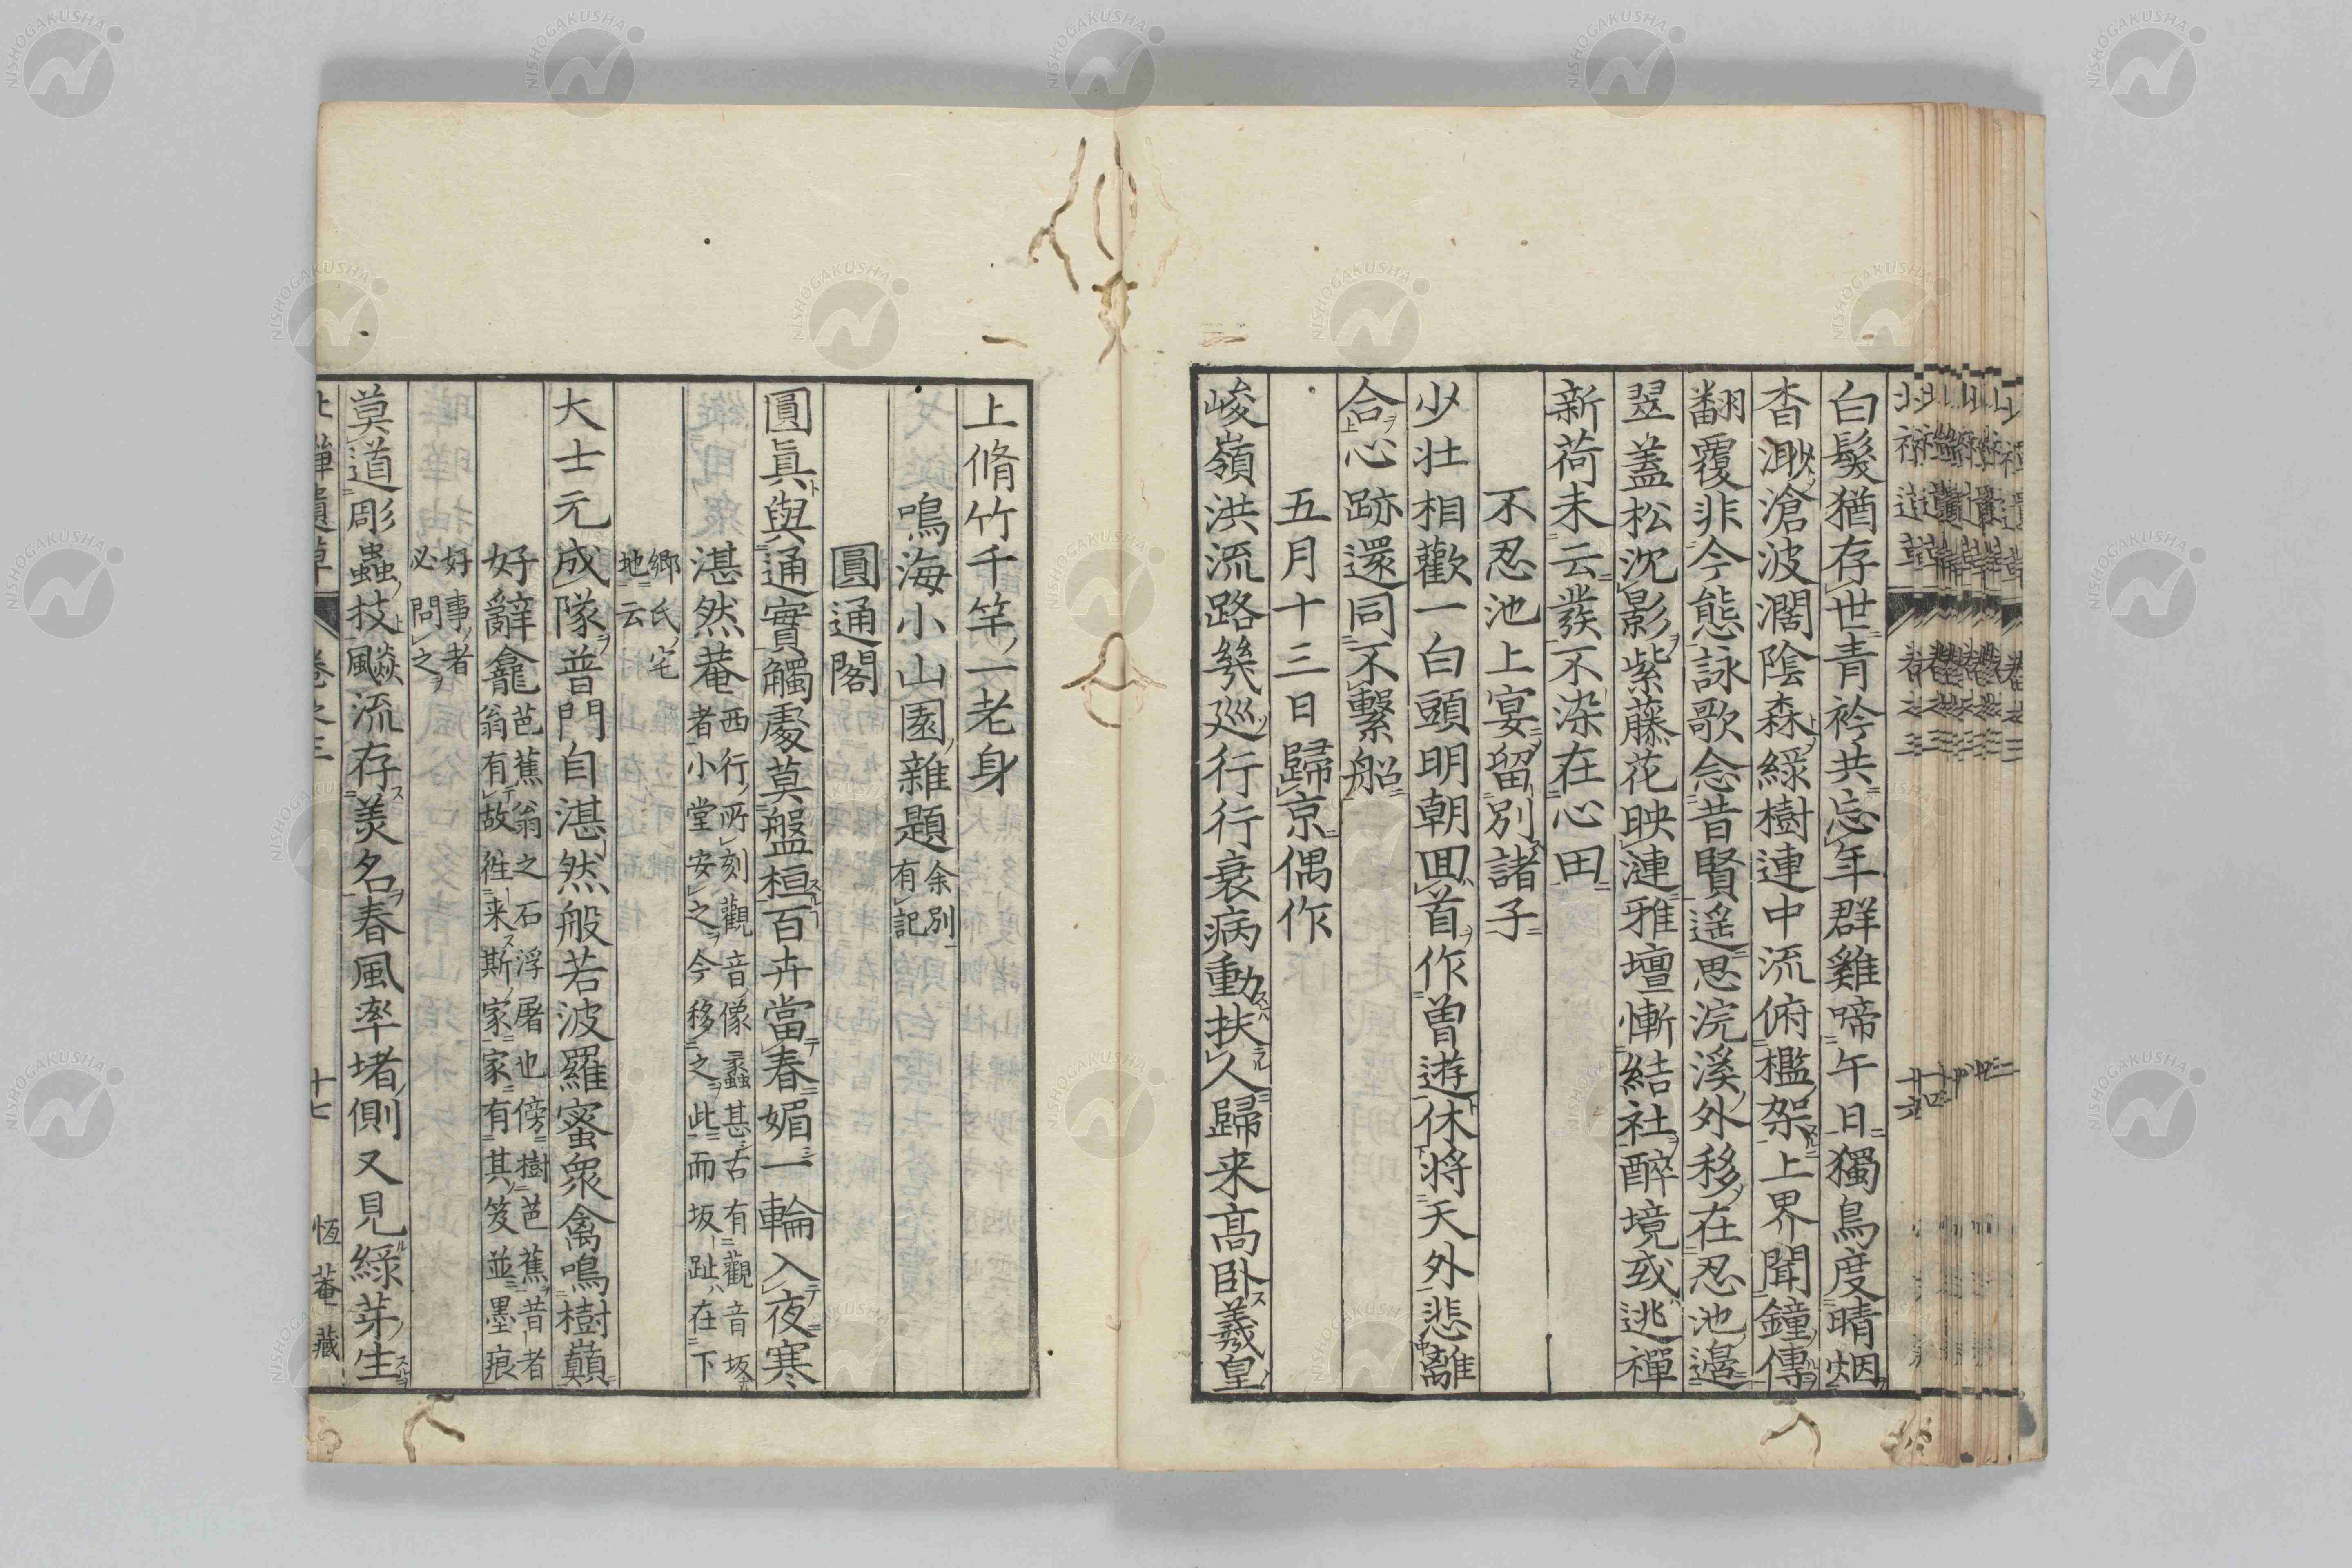 白髮猶存世青衿共忘年群雞啼午日獨鳥度晴烟
杳渺滄波濶陰森綠樹連中流俯檻架上界聞鐘傳
翻覆非今態詠歌念昔賢遥思浣溪外移在忍池邊
翠蓋松沈影紫藤花映漣雅壇慚結社醉境或逃禪
新荷未云發不染在心田
不忍池上宴留別諸子
少壯相歡一白頭明朝回首作曽遊休將天外悲離
合心跡還同不繫船
五月十三日歸京偶作
峻嶺洪流路幾巡行行衰病動扶人歸来高卧羲皇
上脩竹千竿一老身
鳴海小山園雜題余別有記
圓通閣
圓眞與通實觸處莫盤桓百卉當春媚一輪入夜寒
湛然菴西行所刻觀音像蠧甚古有觀音坂者小堂安之今移之此而坂趾在下
鄉氏宅地云
大士元成隊普門自湛然般若波羅蜜衆禽鳴樹巔
好辭龕芭蕉翁之石浮屠也傍樹芭蕉昔者翁有故徃来斯家家有其笈並墨痕
好事者必問之
莫道彫蟲技飈流存羙名春風率堵側又見綠芽生
北禪遺草 卷之三 十七 恆菴藏